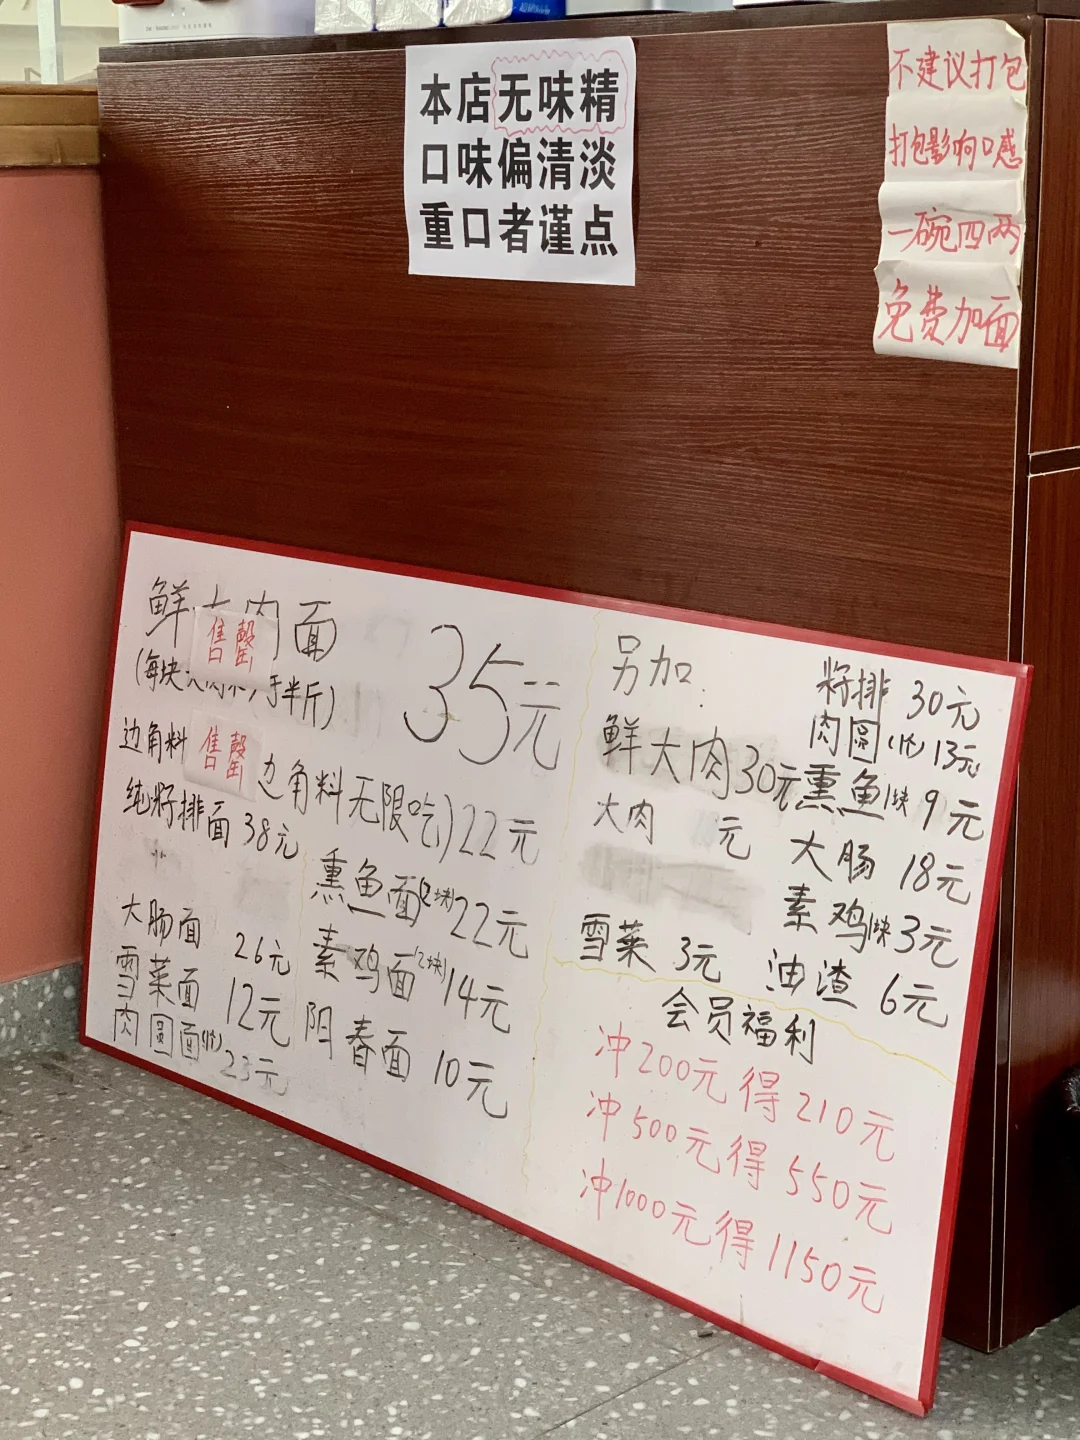 本店无味精
口味偏清淡
重口者谨点
不建议打包
打包影响口感
一碗四两
免费加面
鲜大肉面 35元
售罄
(每块大肉不小于半斤)
边角料
售罄
边角料无限吃)22元
纯籽排面 38元
熏鱼面(2块)22元
大肠面 26元
素鸡面(2块)14元
雪菜面 12元
阳春面 10元
肉圆面(1个) 23元
另加
鲜大肉30元
大肉 元
雪菜 3元
籽排 30元
肉圆(1个)13元
熏鱼1块 9元
大肠 18元
素鸡1块 3元
油渣 6元
会员福利
冲200元得210元
冲500元得550元
冲1000元得1150元